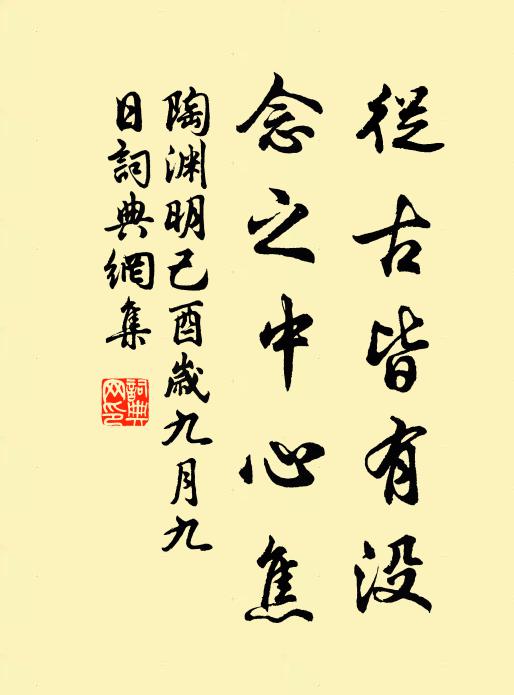 從古皆有没
念之中心焦
陶渊明己酉歲九月九
日詞典網集
詞典
网印